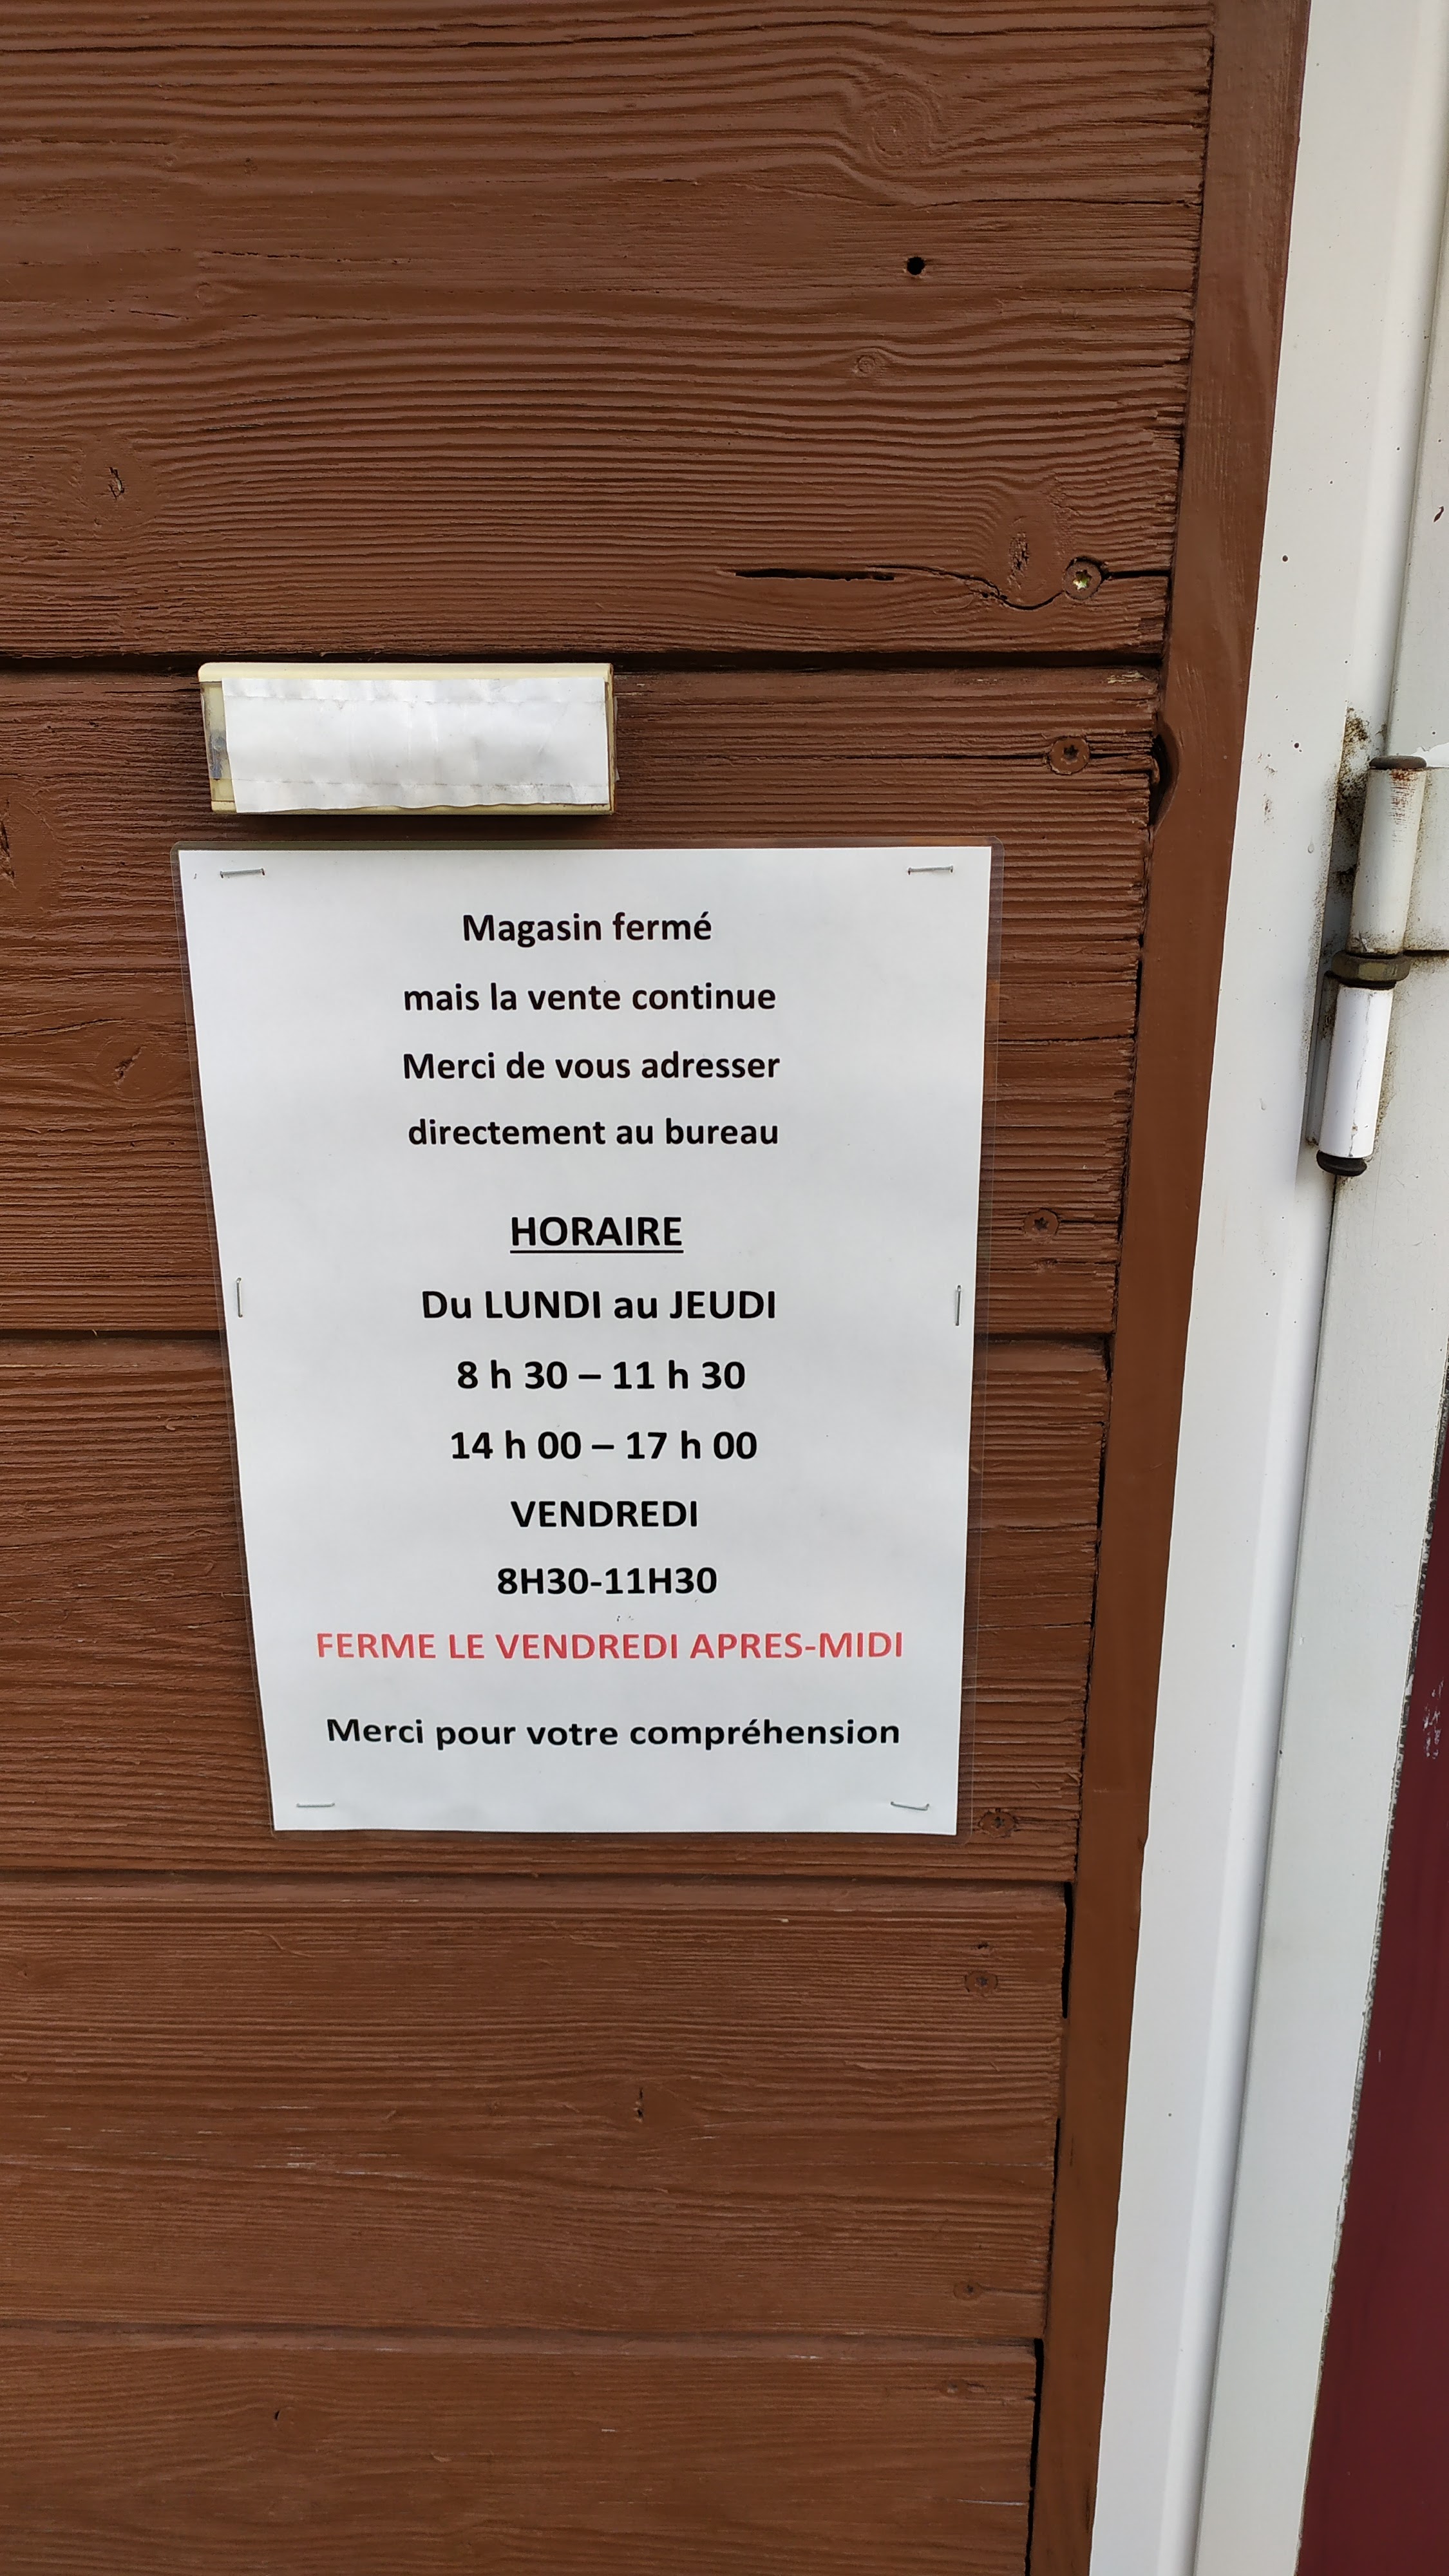 Magasin fermé
mais la vente continue
Merci de vous adresser
directement au bureau
HORAIRE
Du LUNDI au JEUDI
8 h 30 – 11 h 30
14 h 00 – 17 h 00
VENDREDI
8H30-11H30
FERME LE VENDREDI APRES-MIDI
Merci pour votre compréhension